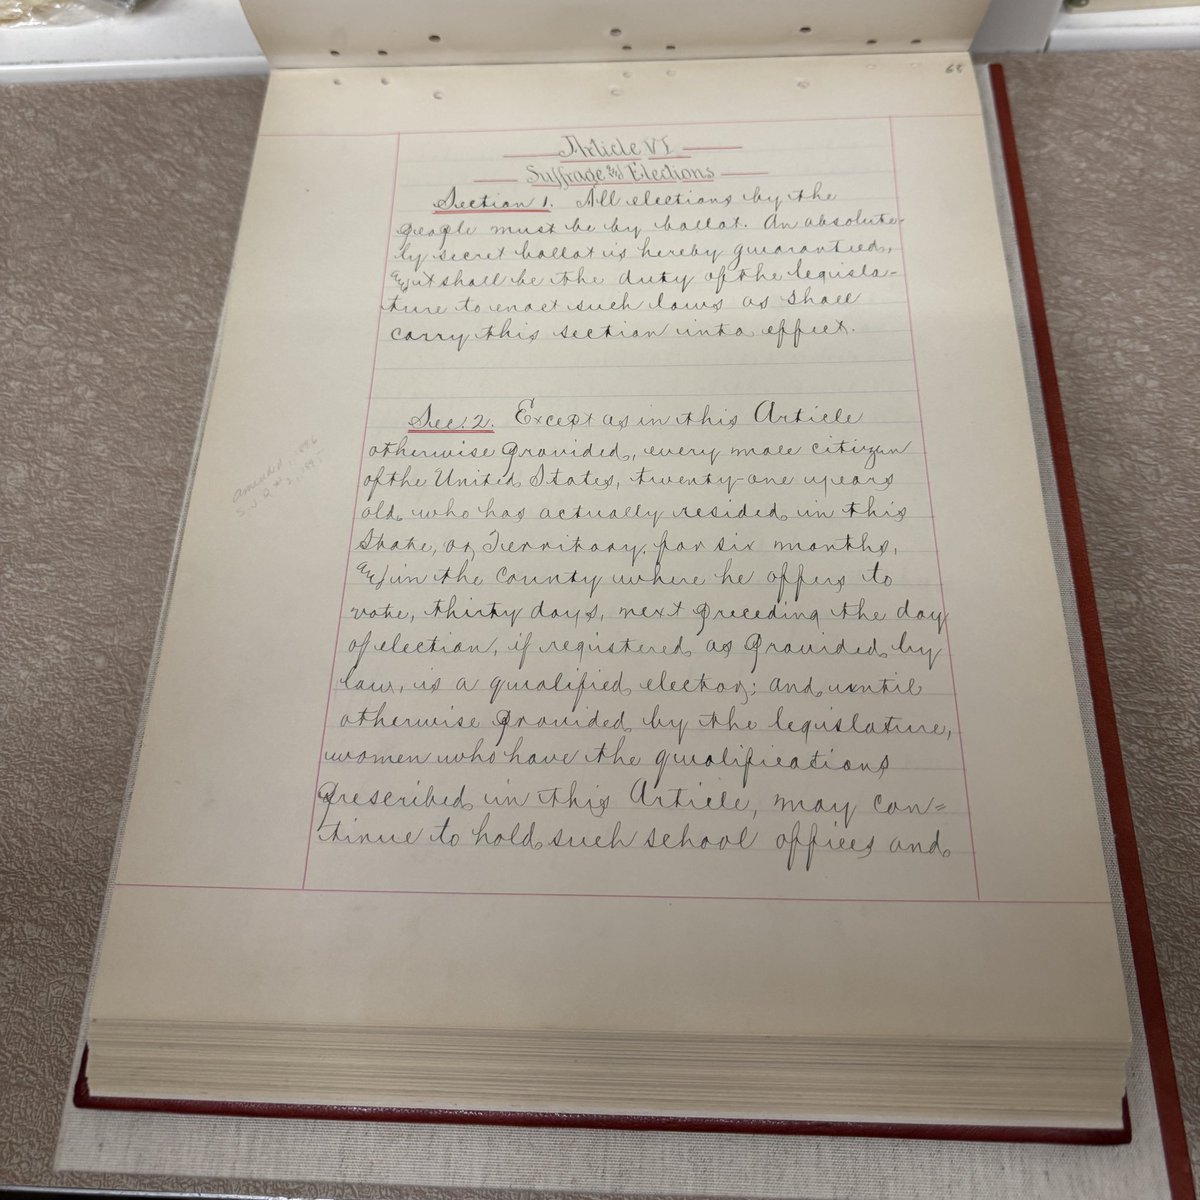 68
Article VI
Suffrage and Elections
Section 1. All elections by the
people must be by ballot. An absolute-
ly secret ballot is hereby guaranteed,
and it shall be the duty of the legisla-
ture to enact such laws as shall
carry this section into effect.
Sec. 2. Except as in this Article
otherwise provided, every male citizen
of the United States, twenty-one years
old, who has actually resided in this
State, or Territory, for six months,
and in the county where he offers to
vote, thirty days, next preceding the day
of election, if registered as provided by
law, is a qualified elector; and until
otherwise provided by the legislature,
women who have the qualifications
prescribed in this Article, may con=
tinue to hold such school offices and
amended, 1896
S.J.R. # 2, 1895